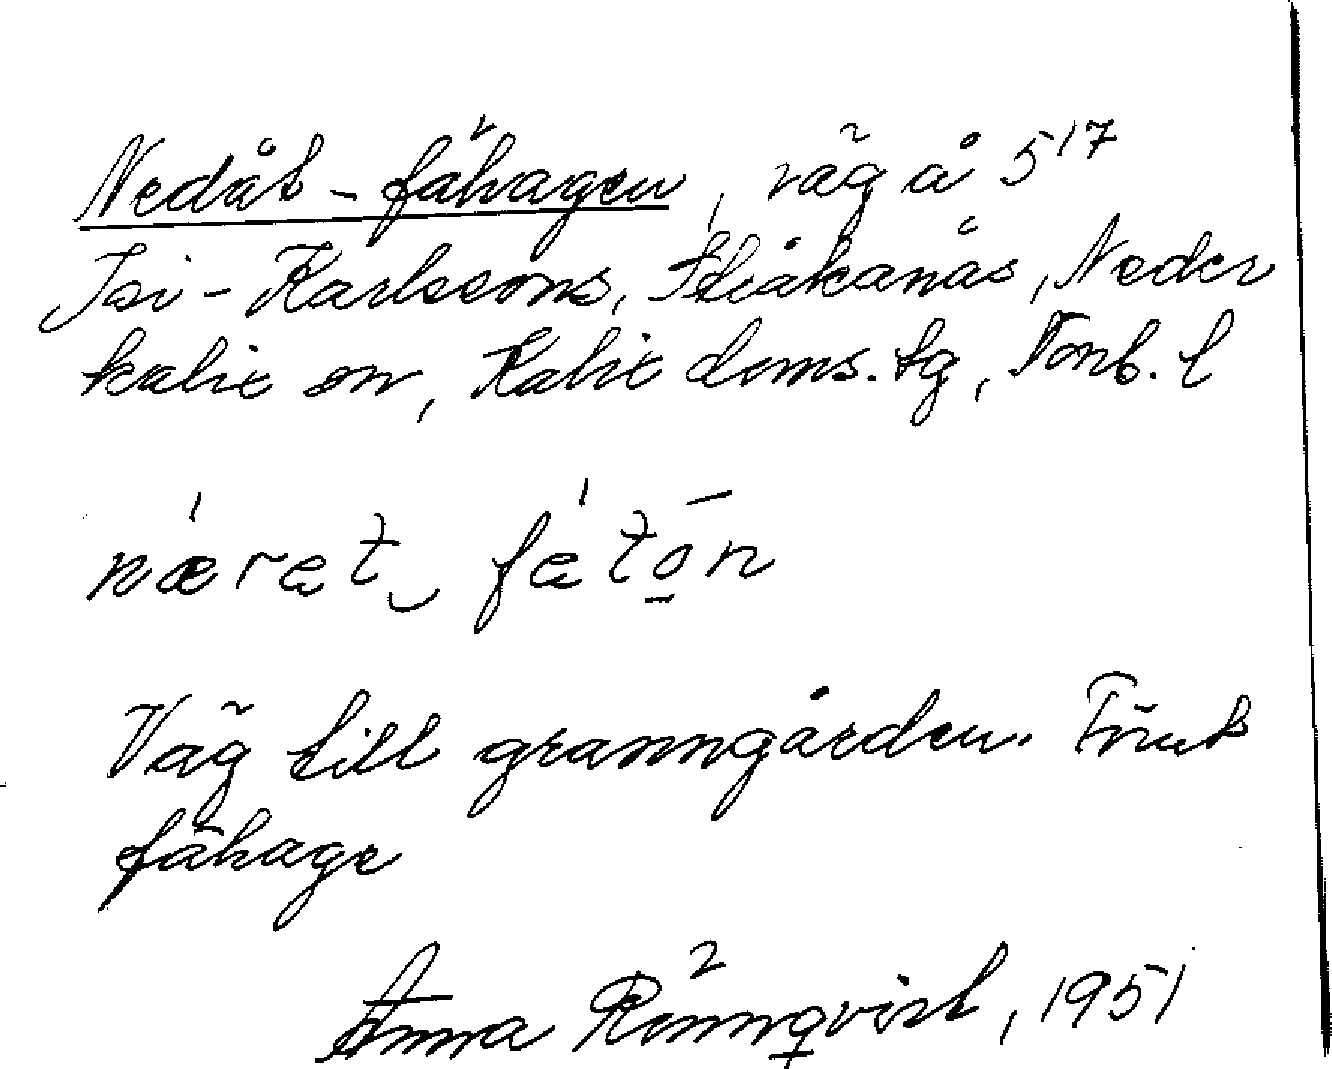 Nedåt-fähagen, väg å 5¹⁷
Isi-Karlssons, Flakanäs, Neder
kalix sn, Kalix doms. tg, Norrb. l
nǽræt‿ fǽtōn
Väg till granngården. Förut
fähage
Anna Rönnqvist, 1951